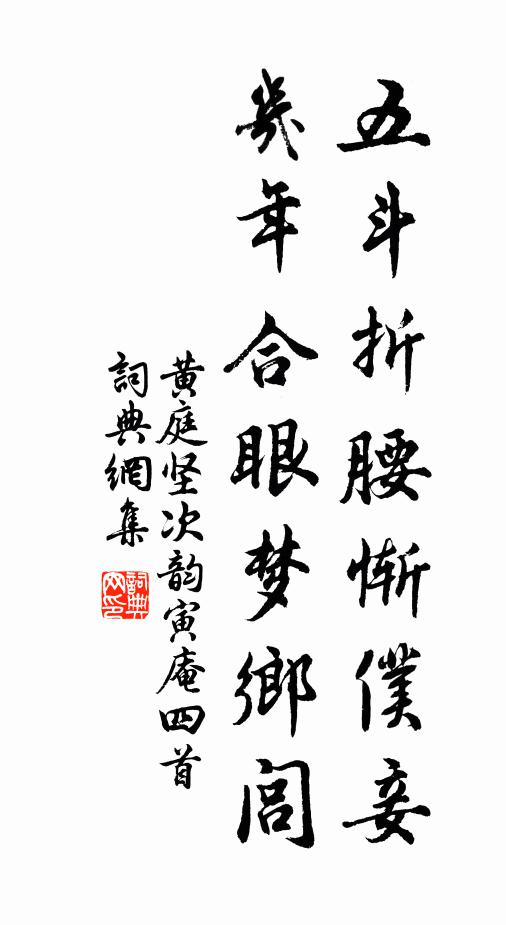 五斗折腰惭僕妾
幾年合眼梦鄉闾
黄庭坚次韵寅庵四首
詞典網集
詞典网印